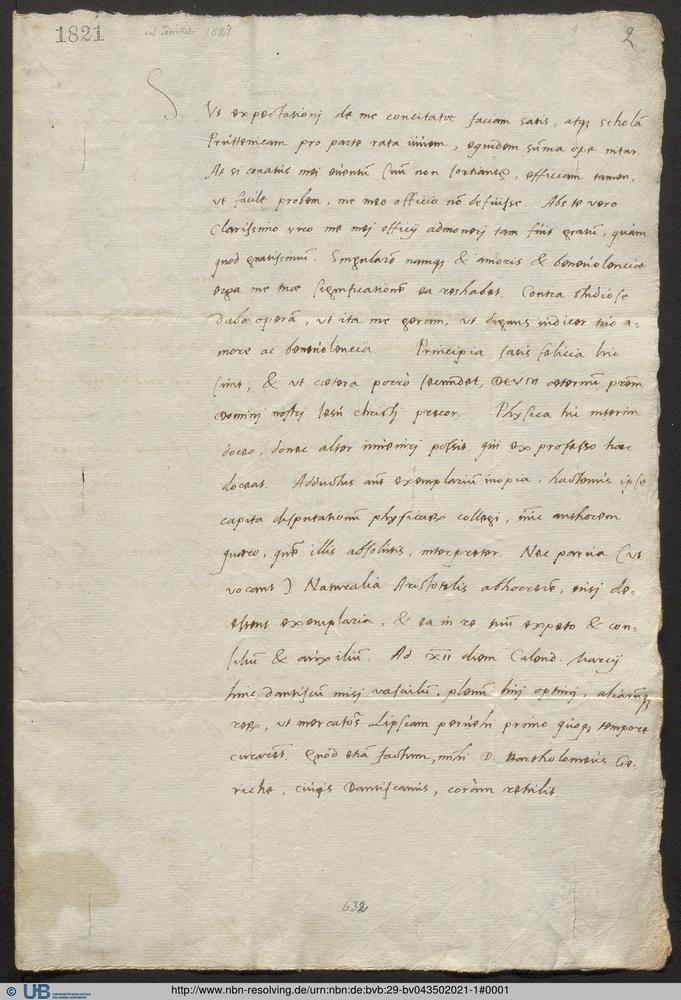 1821
1821
2
S. Vt expectationj de me concitatae faciam satis, atq; scholā
Pruttenicam pro parte rata iuuem, equidem sūma ope nitar.
Ac si conatus mei euentū suū non sortiantᷣ, efficiam tamen,
vt facile probem, me meo officio nō defuisse. Abs te vero
Clarissimo viro me mej officij admonerj tam fuit gratū, quàm
quod gratissimum. Singularē namq; & amoris & beneuolenciae
erga me tuae significationē ea res habet. Contra studiose
dabo operā, vt ita me geram, vt dignus iudicer tuo a-
more ac beneuolencia Principia satis felicia hic
sunt, & vt caetera porrò secundet, DEVM aeternū prēm
Dominj nostrj Iesu christj precor. Physica hic interim
doceo, donec alter inuenirj possit qui ex professo haec
doceat. Adductus aūt exemplarium inopia, hactenus ipse
capita disputationū physicarꝝ collegi, nūc authorem
quaero, quē illis absolutis, interpreter. Nec parua (vt
vocant) Naturalia Aristotelis abhorrerē, nisj de-
essent exemplaria, & ea in re tuū expeto & con-
silium & auxilium. Ad XII diem Calend. Marcij
hinc dantiscū misj vasculū, plenū linj optimj, aliarūq;
rerꝝ, vt mercatōs Lipsiam peruehi primo quoq; tempore
curarēt. Quod etiā factum, mihi D. Bartholomeus Ge-
riche, ciuis Dantiscanus, coràm retulit.
632
© UB
UNIVERSITÄTSBIBLIOTHEK
ERLANGEN-NÜRNBERG
http://www.nbn-resolving.de/urn:nbn:de:bvb:29-bv043502021-1#0001